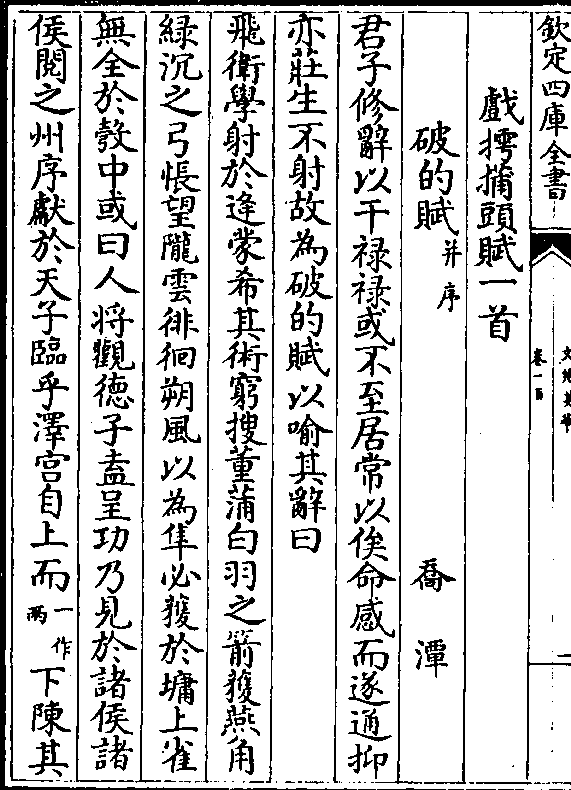 欽定四庫全書
文苑英華
卷一百
戲摴蒱頭賦一首
破的賦并序
喬潭
君子修辭以干祿祿或不至居常以俟命感而遂通抑
亦莊生不射故為破的賦以喻其辭曰
飛衛學射於逢蒙希其術窮搜董蒲白羽之箭獲燕角
綠沉之弓悵望隴雲徘徊朔風以為隼必獲於墉上雀
無全於彀中或曰人將觀德子盍呈功乃見於諸侯諸
侯閱之州序獻於天子臨乎澤宫自上而一作兩下陳其